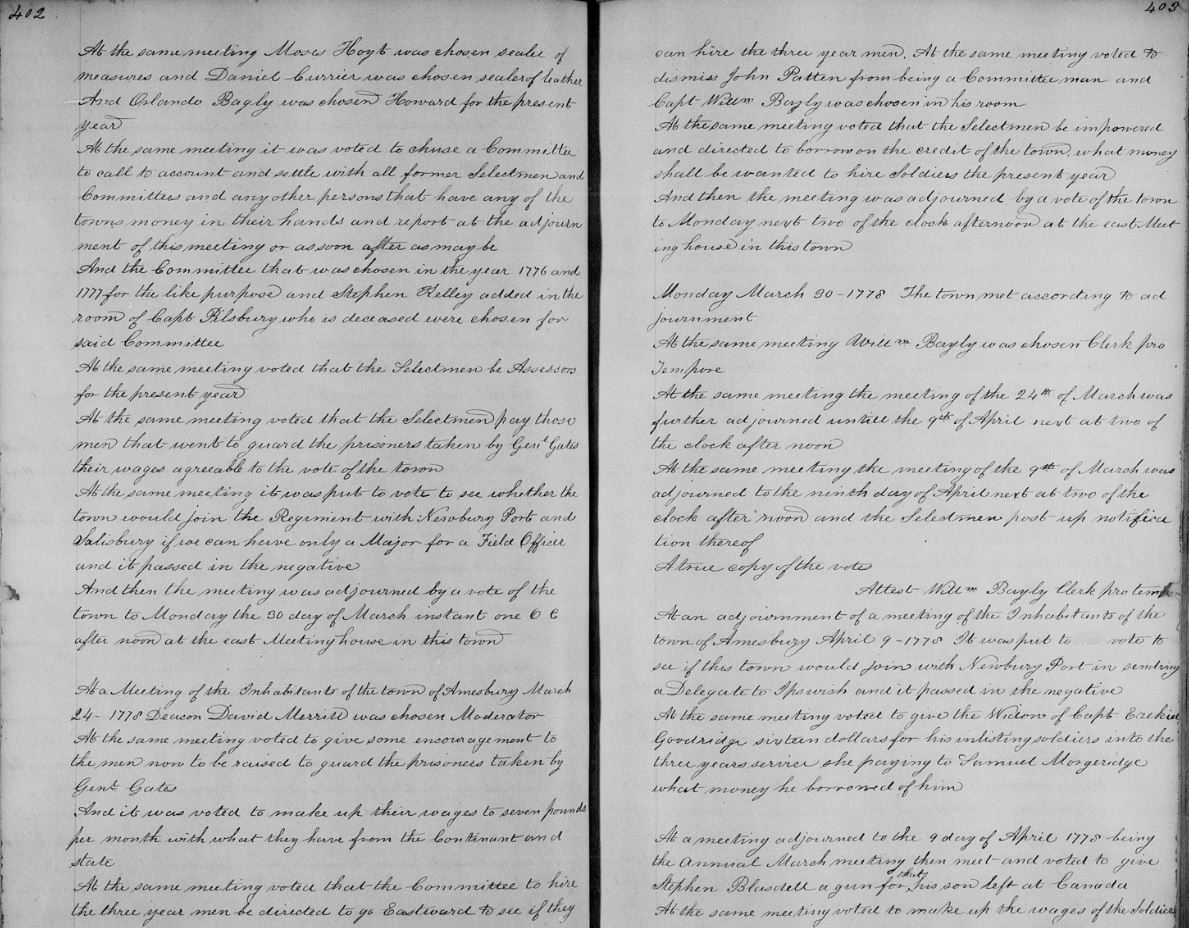 402
At the same meeting Moses Hoyt was chosen sealer of
measures and Daniel Currier was chosen sealer of leather
And Orlando Bagly was chosen Howard for the present
year
At the same meeting it was voted to chuse a Committee
to call to account and settle with all former Selectmen and
Committees and any other persons that have any of the
towns money in their hands and report at the adjourn
ment of this meeting or as soon after as may be
And the Committee that was chosen in the year 1776 and
1777 for the like purpose and Stephen Kelley added in the
room of Capt Pilsbury who is deceased were chosen for
said Committee
At the same meeting voted that the Selectmen be Assessors
for the present year
At the same meeting voted that the Selectmen pay those
men that went to guard the prisoners taken by Genl Gates
their wages agreeable to the vote of the town
At the same meeting it was put to vote to see whether the
town would join the Regiment with Newbury Port and
Salisbury if we can have only a Major for a Field Officer
and it passed in the negative
And then the meeting was adjourned by a vote of the
town to Monday the 30 day of March instant one O C
after noon at the east Meeting house in this town
At a Meeting of the Inhabitants of the town of Amesbury March
24 - 1778 Deacon David Merrill was chosen Moderator
At the same meeting voted to give some encouragement to
the men now to be raised to guard the prisoners taken by
Genl Gates
And it was voted to make up their wages to seven pounds
per month with what they have from the Continant and
state
At the same meeting voted that the Committee to hire
the three year men be directed to go Eastward to see if they
403
can hire the three year men. At the same meeting voted to
dismiss John Patten from being a Committee man and
Capt Willm Bayly was chosen in his room
At the same meeting voted that the Selectmen be impowered
and directed to borrow on the credit of the town, what money
shall be wanted to hire Soldiers the present year
And then the meeting was adjourned by a vote of the town
to Monday next two of the clock afternoon at the east Meet
ing house in this town
Monday March 30 - 1778 The town met according to ad
journment
At the same meeting Willm Bayly was chosen Clerk pro
Tempore
At the same meeting the meeting of the 24th of March was
further adjourned untill the 9th of April next at two of
the clock after noon
At the same meeting the meeting of the 9th of March was
adjourned to the ninth day of April next at two of the
clock after noon and the Selectmen post up notifica
tion thereof
A true copy of the vote
Attest Willm Bayly Clerk pro tem
At an adjournment of a meeting of the Inhabitants of the
town of Amesbury April 9 - 1778 It was put to vote to
see if this town would join with Newbury Port in sending
a Delegate to Ipswish and it passed in the negative
At the same meeting voted to give the Widow of Capt Ezekiel
Goodridge sixteen dollars for his inlisting soldiers into the
three years service she paying to Samuel Morgeridge
what money he borrowed of him
At a meeting adjourned to the 9 day of April 1778 being
the Annual March meeting then meet and voted to give
Stephen Blasdell a gun for that his son left at Canada
At the same meeting voted to make up the wages of the Soldiers